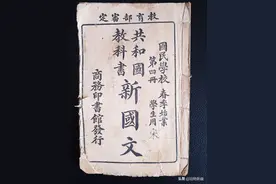 教育部審定
國民學校
第四冊 春季始業
學生用
共和國
教科書
新國文
商務印書館發行